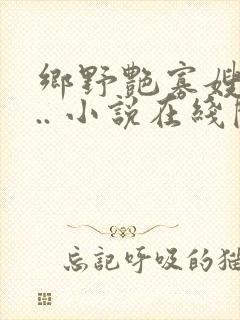 鄉野艷寡嫂
.. 小說在綫
忘記呼吸的